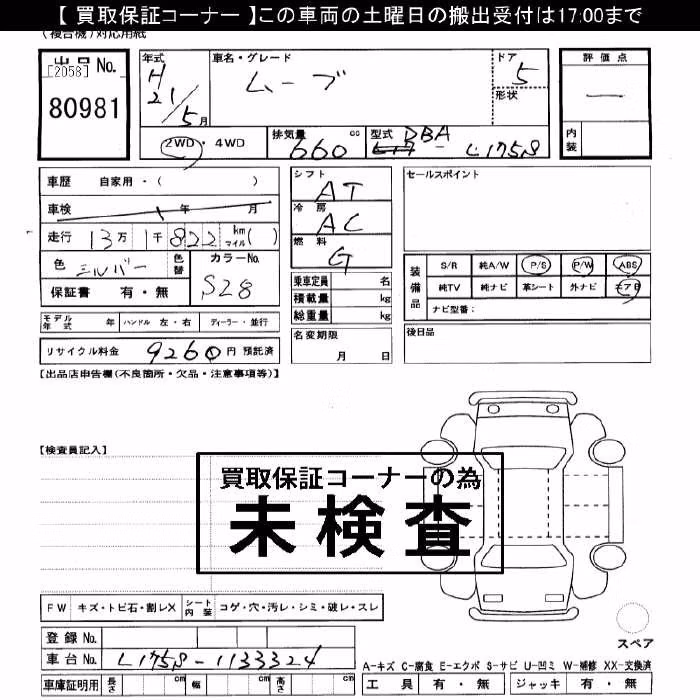 【 買取保証コーナー 】この車両の土曜日の搬出受付は17:00まで
(複合機)対応用紙
出品No.
[2058]
80981
年式
H
21/5月
車名・グレード
ムーブ
ドア
5
形状
評価点
—
内装
2WD・4WD
排気量
660 cc
型式
DBA - L175S
車歴 自家用・( )
車検 年 月
走行 13万1千822 km マイル( )
色 シルバー
色替
カラーNo.
S28
保証書 有・無
シフト
AT
冷房
AC
燃料
G
乗車定員 名
積載量 kg
総重量 kg
名変期限
月 日
セールスポイント
装備品
S/R 純A/W P/S P/W ABS
純TV 純ナビ 革シート 外ナビ エアB
ナビ型番:
後日品
モデル年式 年 ハンドル 左・右 ディーラー・並行
リサイクル料金 9260円 預託済
【出品店申告欄(不良箇所・欠品・注意事項等)】
【検査員記入】
買取保証コーナーの為
未検査
FW キズ・トビ石・割レX シート内装 コゲ・穴・汚レ・シミ・破レ・スレ
登録No.
車台No. L175S-1133324
車庫証明用 長さ cm 幅 cm 高さ cm
スペア
A-キズ C-腐食 E-エクボ S-サビ U-凹ミ W-補修 XX-交換済
工具 有・無 ジャッキ 有・無